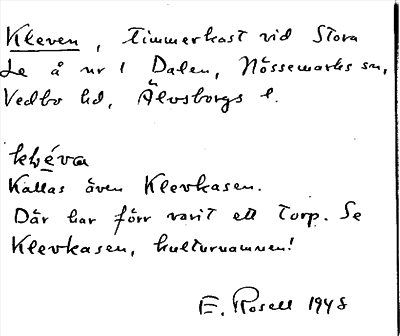 Kleven, timmerkast vid Stora
Le å nr 1 Dalen, Nössemarks sn,
Vedbo hd, Älvsborgs l.
kléva
Kallas även Klevkasen.
Där har förr varit ett torp. Se
Klevkasen, kulturnamnen!
E. Rosell 1948